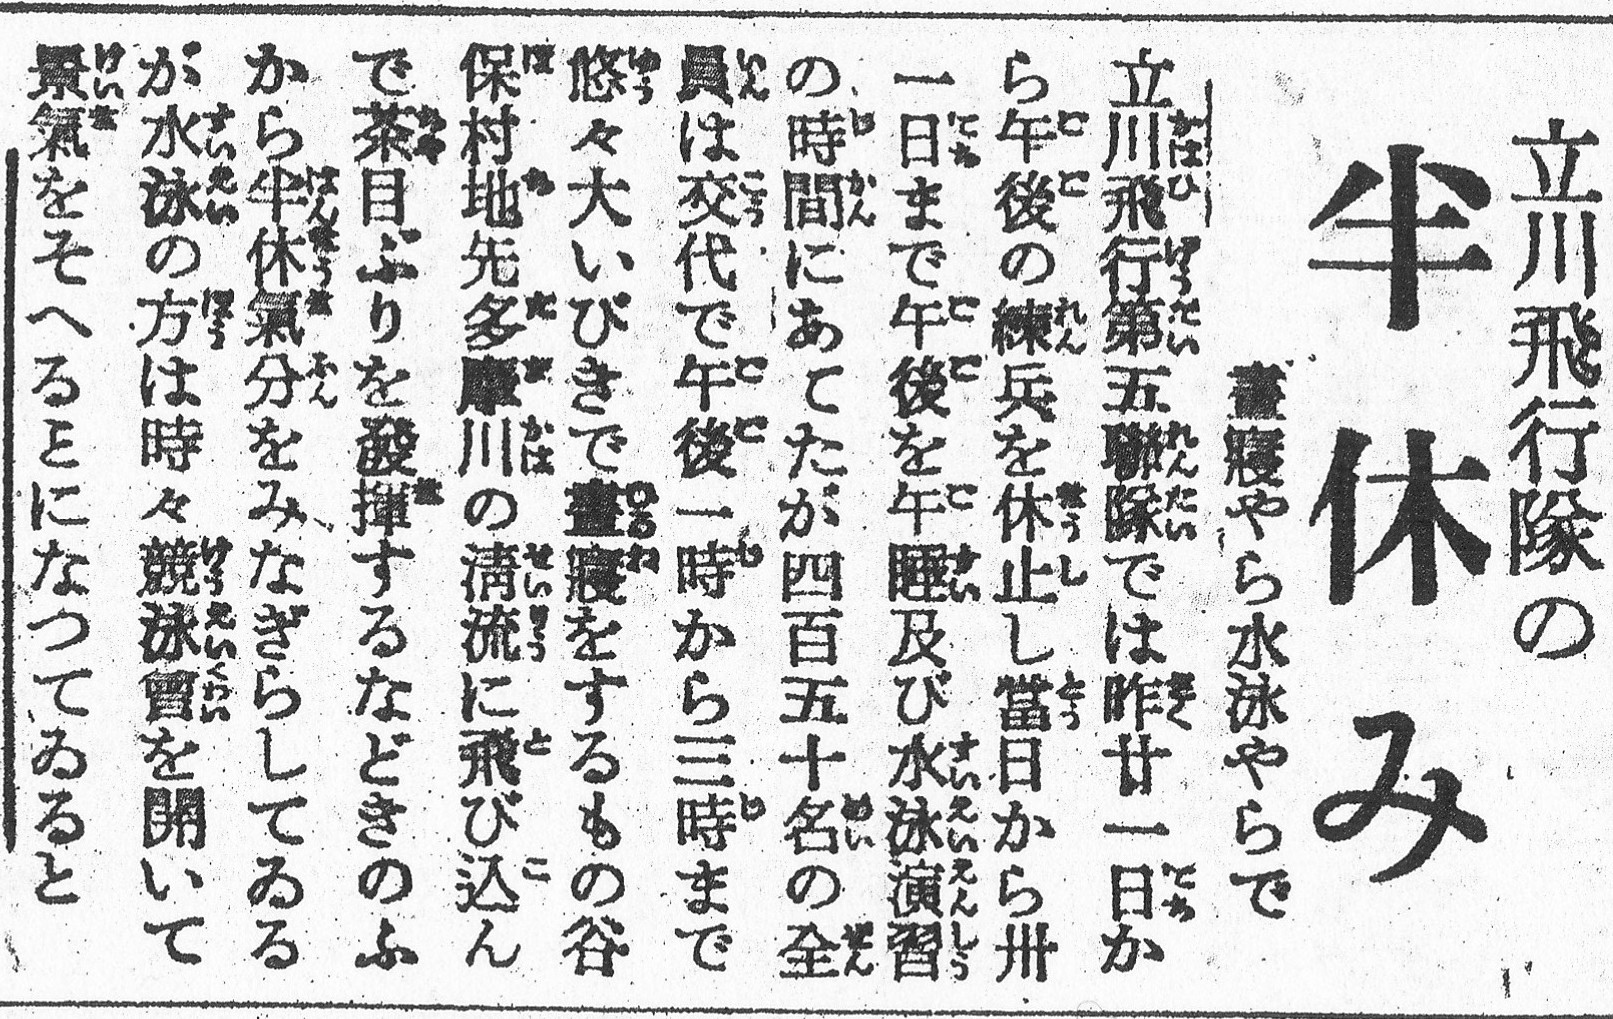 立川飛行隊の
半休み
晝寢やら水泳やらで
立川飛行第五聯隊では昨廿一日か
ら午後の練兵を休止し當日から卅
一日まで午後を午睡及び水泳演習
の時間にあてたが四百五十名の全
員は交代で午後一時から三時まで
悠々大いびきで晝寢をするもの谷
保村地先多摩川の淸流に飛び込ん
で茶目ぶりを發揮するなどきのふ
から半休氣分をみなぎらしてゐる
が水泳の方は時々競泳會を開いて
景氣をそへるとになつてゐると